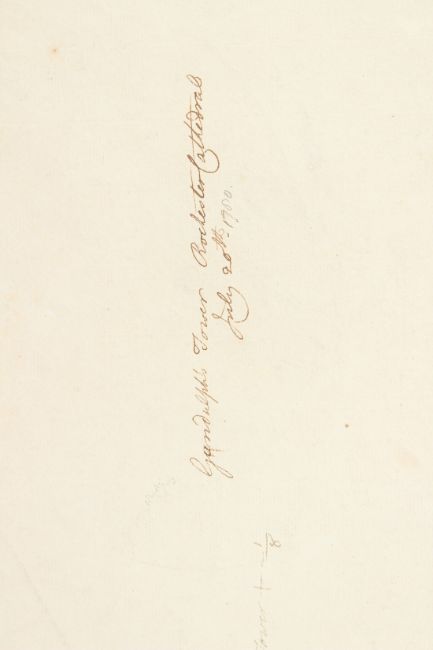 Gundulph's Tower Rochester Cathedral
July 20th. 1790.
Tower + 1/8